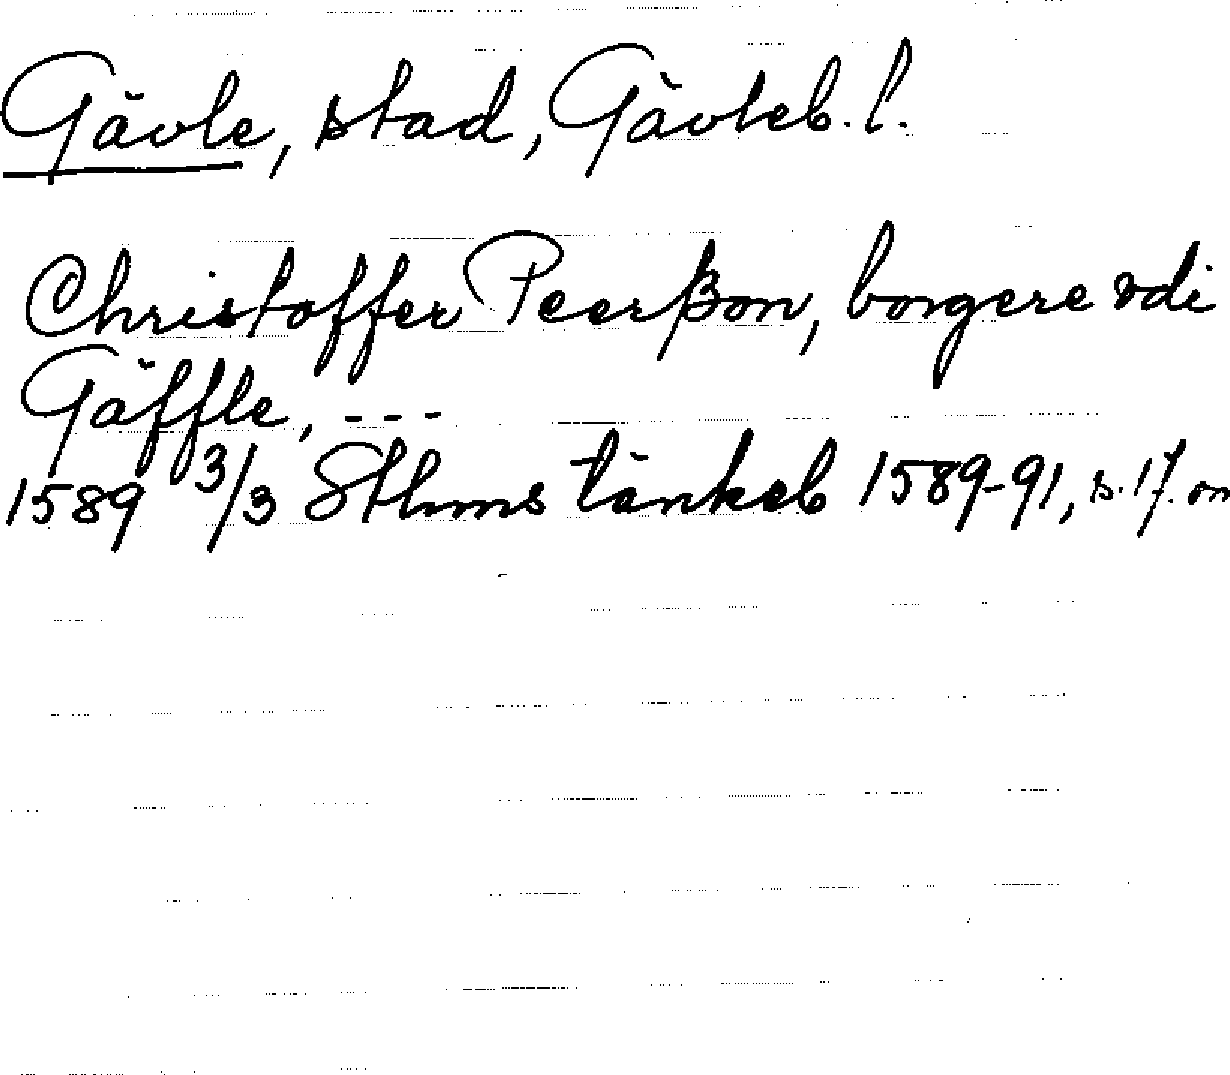 Gävle, stad, Gävleb. l.
Christoffer Peerßon, borgere vdi
Gäffle, ---
1589 3/3 Sthms tänkeb 1589-91, s. 17. on